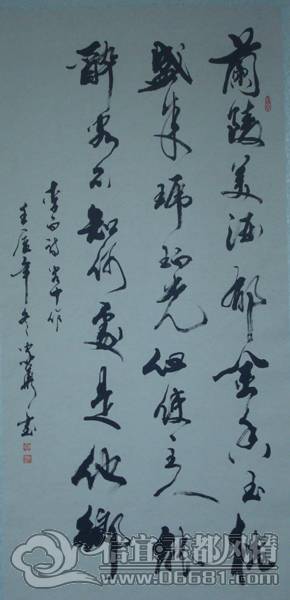 蘭陵美酒郁金香玉椀
盛来琥珀光但使主人能
醉客不知何處是他鄉
李白诗客中作
年冬
书
信宜玉都风情
www.06681.com